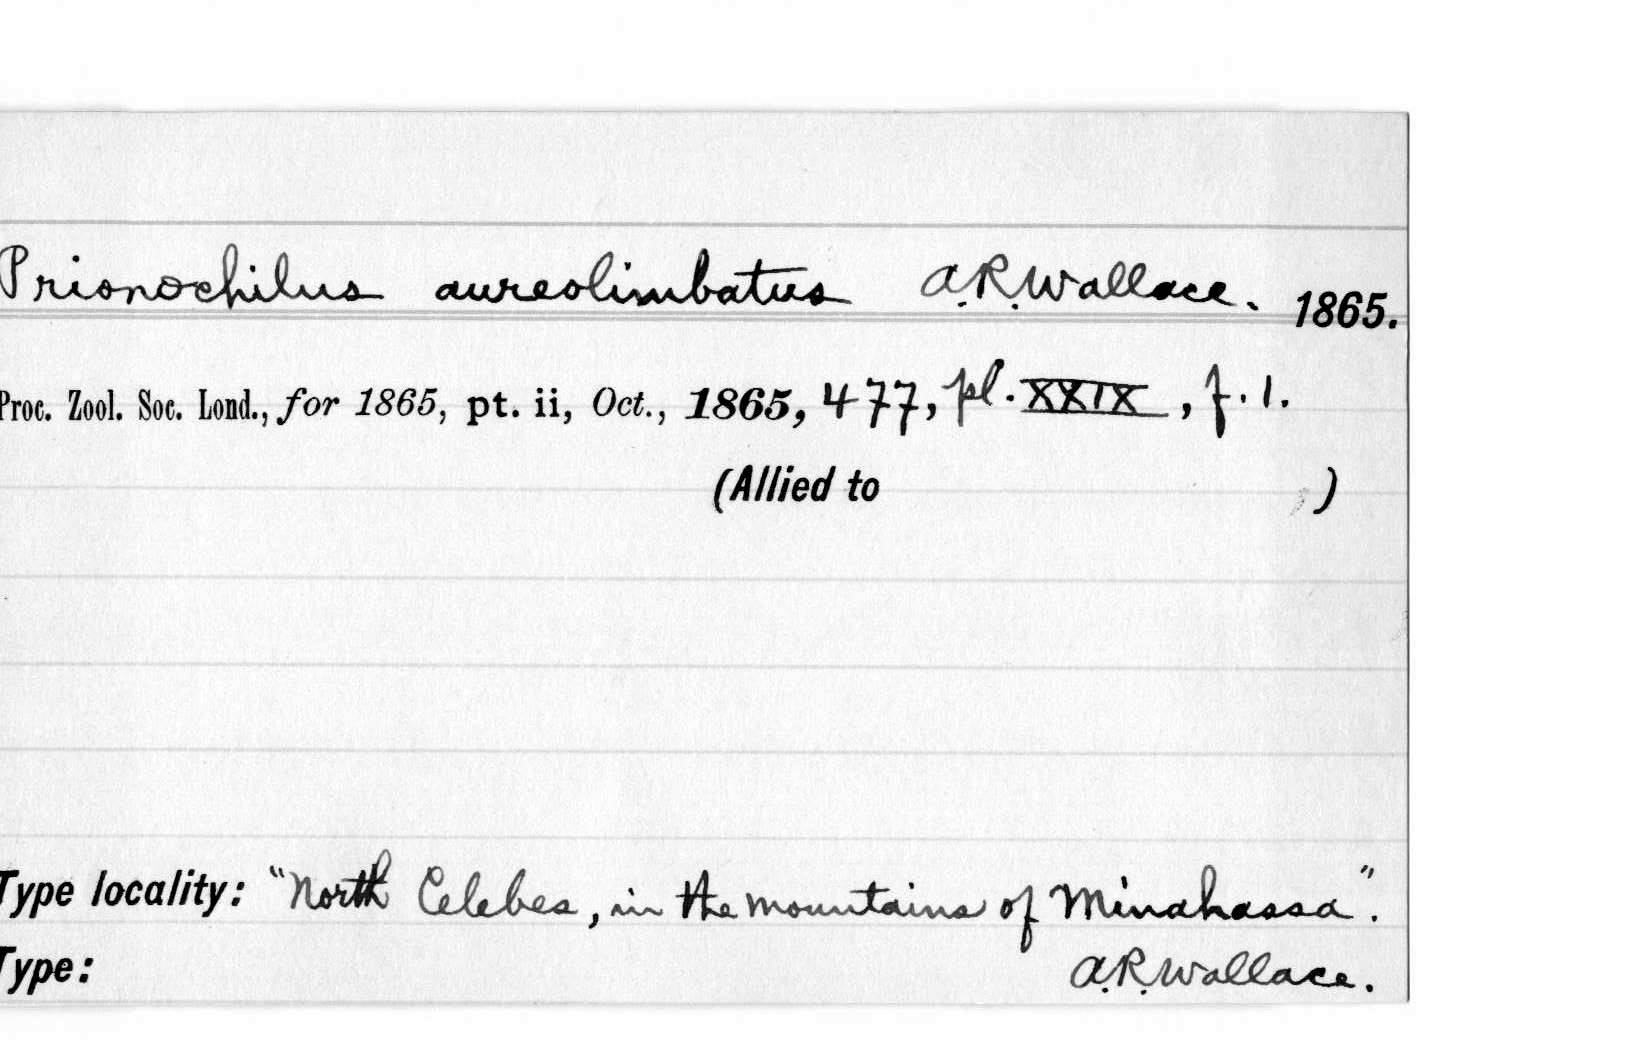 Prionochilus aureolimbatus A.R.Wallace. 1865.
Proc. Zool. Soc. Lond., for 1865, pt. ii, Oct., 1865, 477, pl. XXIX, f. 1.
(Allied to )
Type locality: "North Celebes, in the mountains of Minahassa".
Type: A.R.Wallace.